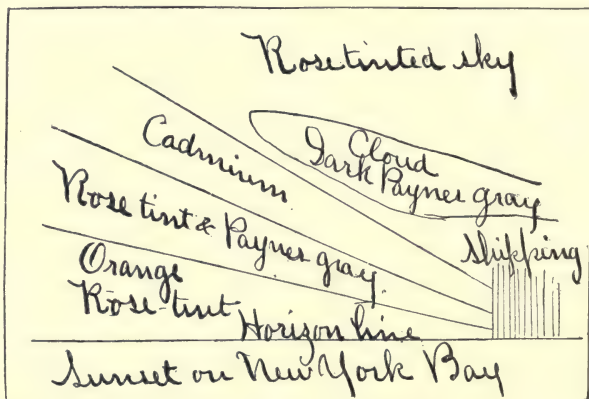 Rose tinted sky
Cloud
Dark Paynes gray
Cadmium
Rose tint & Paynes gray.
Shipping
Orange
Rose-tint
Horizon line
Sunset on New York Bay